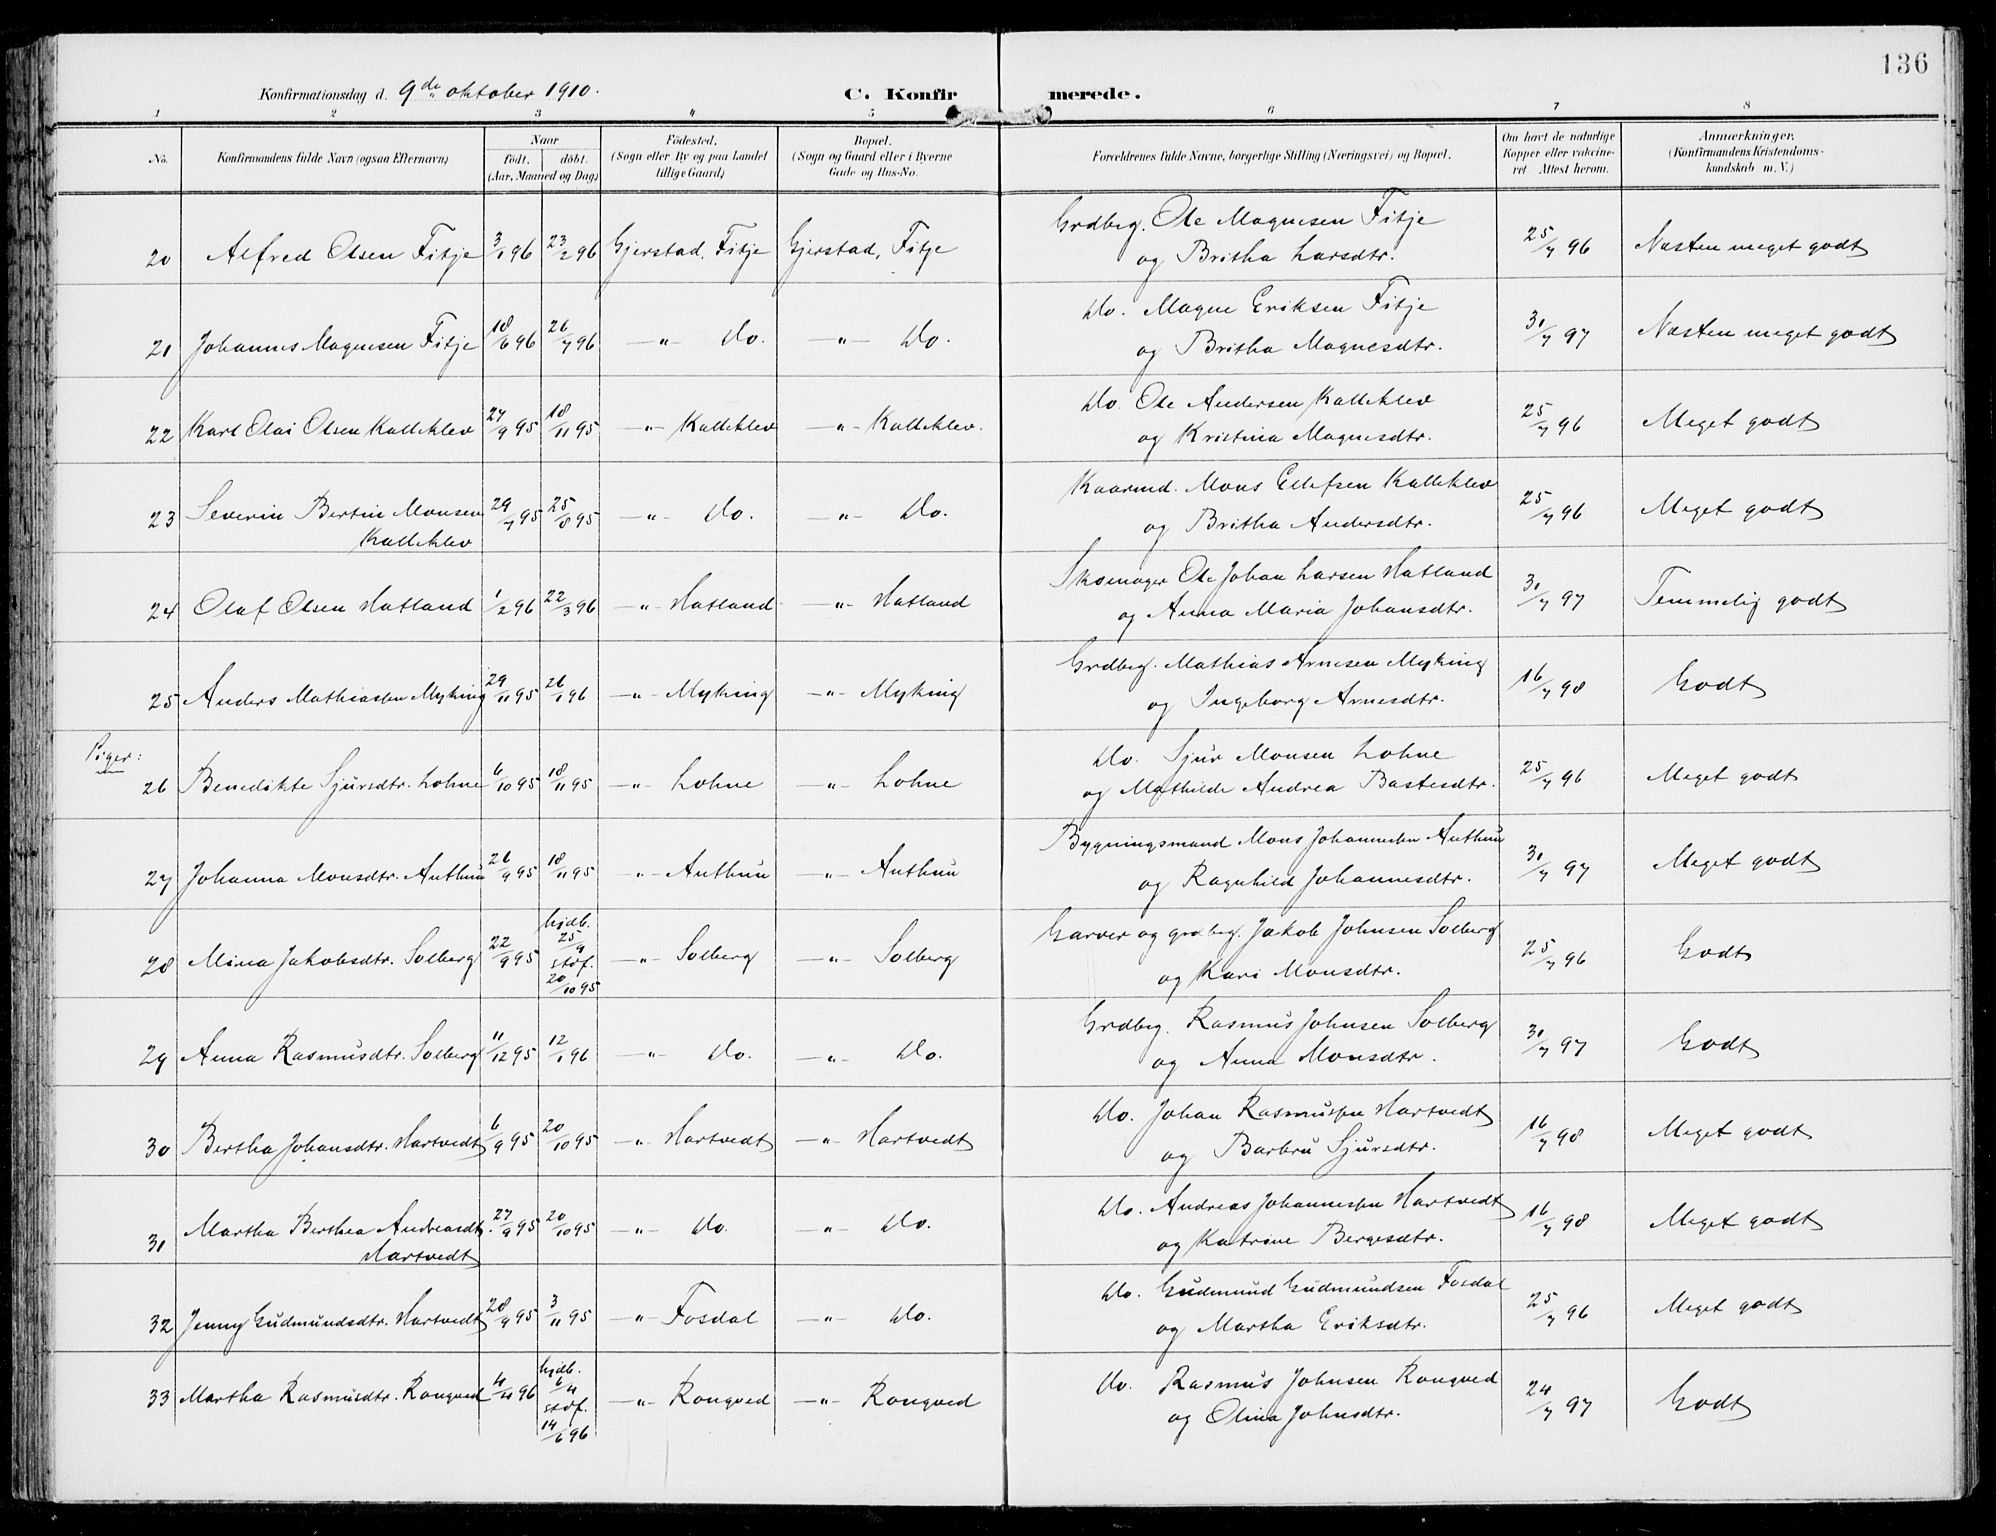 136
Konfirmationsdag d. 9de oktober 1910.
C. Konfirmerede.
1 2 3 4 5 6 7 8
No. Konfirmandens fulde Navn (ogsaa Efternavn) Naar født. døbt. (Aar, Maaned og Dag) Fødested. (Sogn eller By og paa Landet tillige Gaard) Bopæl. (Sogn og Gaard eller i Byerne Gade og Hus-No. Forældrenes fulde Navne, borgerlige Stilling (Næringsvei) og Bopæl. Om havt de naturlige Kopper eller vakcineret Attest herom. Anmærkninger. (Konfirmandens Kristendomskundskab m. V.)
20 Alfred Olsen Fitje 3/1 96 23/2 96 Gjerstad, Fitje Gjerstad, Fitje Grdbrg. Ole Magnesen Fitje 25/7 96 Næsten meget godt
og Britha Larsdtr.
21 Johannes Magnesen Fitje 18/6 96 26/7 96 —"— do. —"— do. do. Magne Eriksen Fitje 31/7 97 Næsten meget godt
og Britha Magnesdtr.
22 Karl Olai Olsen Kalleklev 27/9 95 18/11 95 —"— Kalleklev —"— Kalleklev. do. Ole Andersen Kalleklev 25/7 96 Meget godt
og Kristina Magnesdtr.
23 Severin Bertin Monsen 29/7 95 25/8 95 —"— do. —"— do. Kaarmd. Mons Ellefsen Kalleklev 25/7 96 Meget godt
Kalleklev og Britha Andersdtr.
24 Olaf Olsen Hatland 1/2 96 22/3 96 —"— Hatland —"— Hatland Skomager Ole Johan Larsen Hatland 31/7 97 Temmelig godt
og Anna Maria Johansdtr.
25 Anders Mathiassen Myking 29/11 95 26/1 96 —"— Myking —"— Myking Grdbrg. Mathias Arnesen Myking 16/7 98 Godt
og Ingeborg Arnesdtr.
Piger:
26 Benedikte Sjursdtr. Lohne 6/10 95 18/11 95 —"— Lohne —"— Lohne do. Sjur Monsen Lohne 25/7 96 Meget godt
og Mathilde Andrea Bastesdtr.
27 Johanna Monsdtr. Anthun 26/9 95 18/11 95 —"— Anthun —"— Anthun Bygningsmand Mons Johannesen Anthun 31/7 97 Meget godt
og Ragnhild Johannesdtr.
28 Mina Jakobsdtr. Solberg 22/9 95 hjdb. 25/9 stdf. 20/10 95 —"— Solberg —"— Solberg Garver og grdbrg. Jakob Johnsen Solberg 25/7 96 Godt
og Kari Monsdtr.
29 Anna Rasmusdtr. Solberg 11/12 95 12/1 96 —"— do. —"— do. Grdbrg. Rasmus Johnsen Solberg 31/7 97 Godt
og Anna Monsdtr.
30 Bertha Johansdtr. Hartvedt 6/9 95 20/10 95 —"— Hartvedt —"— Hartvedt do. Johan Rasmussen Hartvedt 16/7 98 Meget godt
og Barbru Sjursdtr.
31 Martha Berthea Andreasdt. 27/9 95 20/10 95 —"— do. —"— do. do. Andreas Johannessen Hartvedt 16/7 98 Meget godt
Hartvedt og Katrine Bergesdtr.
32 Jenny Gudmundsdtr. Hartvedt 28/9 95 3/11 95 —"— Fosdal —"— do. do. Gudmund Gudmundsen Fosdal 25/7 96 Meget godt
og Martha Eriksdtr.
33 Martha Rasmusdtr. Rongved 4/4 96 hjdb. 6/4 stdf. 14/6 96 —"— Rongved —"— Rongved do. Rasmus Johnsen Rongved 24/7 97 Godt
og Olina Johnsdtr.